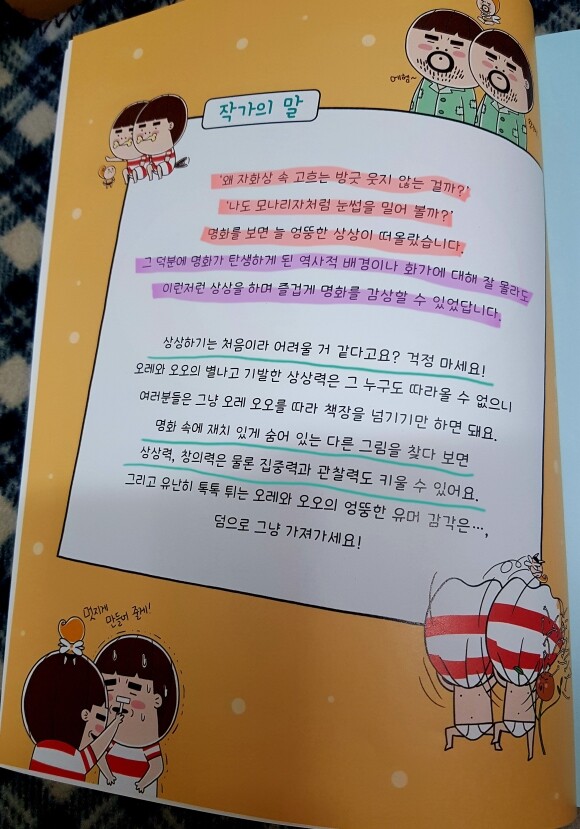 에헴~
작가의 말
'왜 자화상 속 고흐는 방긋 웃지 않는 걸까?'
'나도 모나리자처럼 눈썹을 밀어 볼까?'
명화를 보면 늘 엉뚱한 상상이 떠올랐습니다.
그 덕분에 명화가 탄생하게 된 역사적 배경이나 화가에 대해 잘 몰라도
이런저런 상상을 하며 즐겁게 명화를 감상할 수 있었답니다.
상상하기는 처음이라 어려울 거 같다고요? 걱정 마세요!
오레와 오오의 별나고 기발한 상상력은 그 누구도 따라올 수 없으니
여러분들은 그냥 오레 오오를 따라 책장을 넘기기만 하면 돼요.
명화 속에 재치 있게 숨어 있는 다른 그림을 찾다 보면
상상력, 창의력은 물론 집중력과 관찰력도 키울 수 있어요.
그리고 유난히 톡톡 튀는 오레와 오오의 엉뚱한 유머 감각은…,
덤으로 그냥 가져가세요!
멋지게
만들어 줄게!